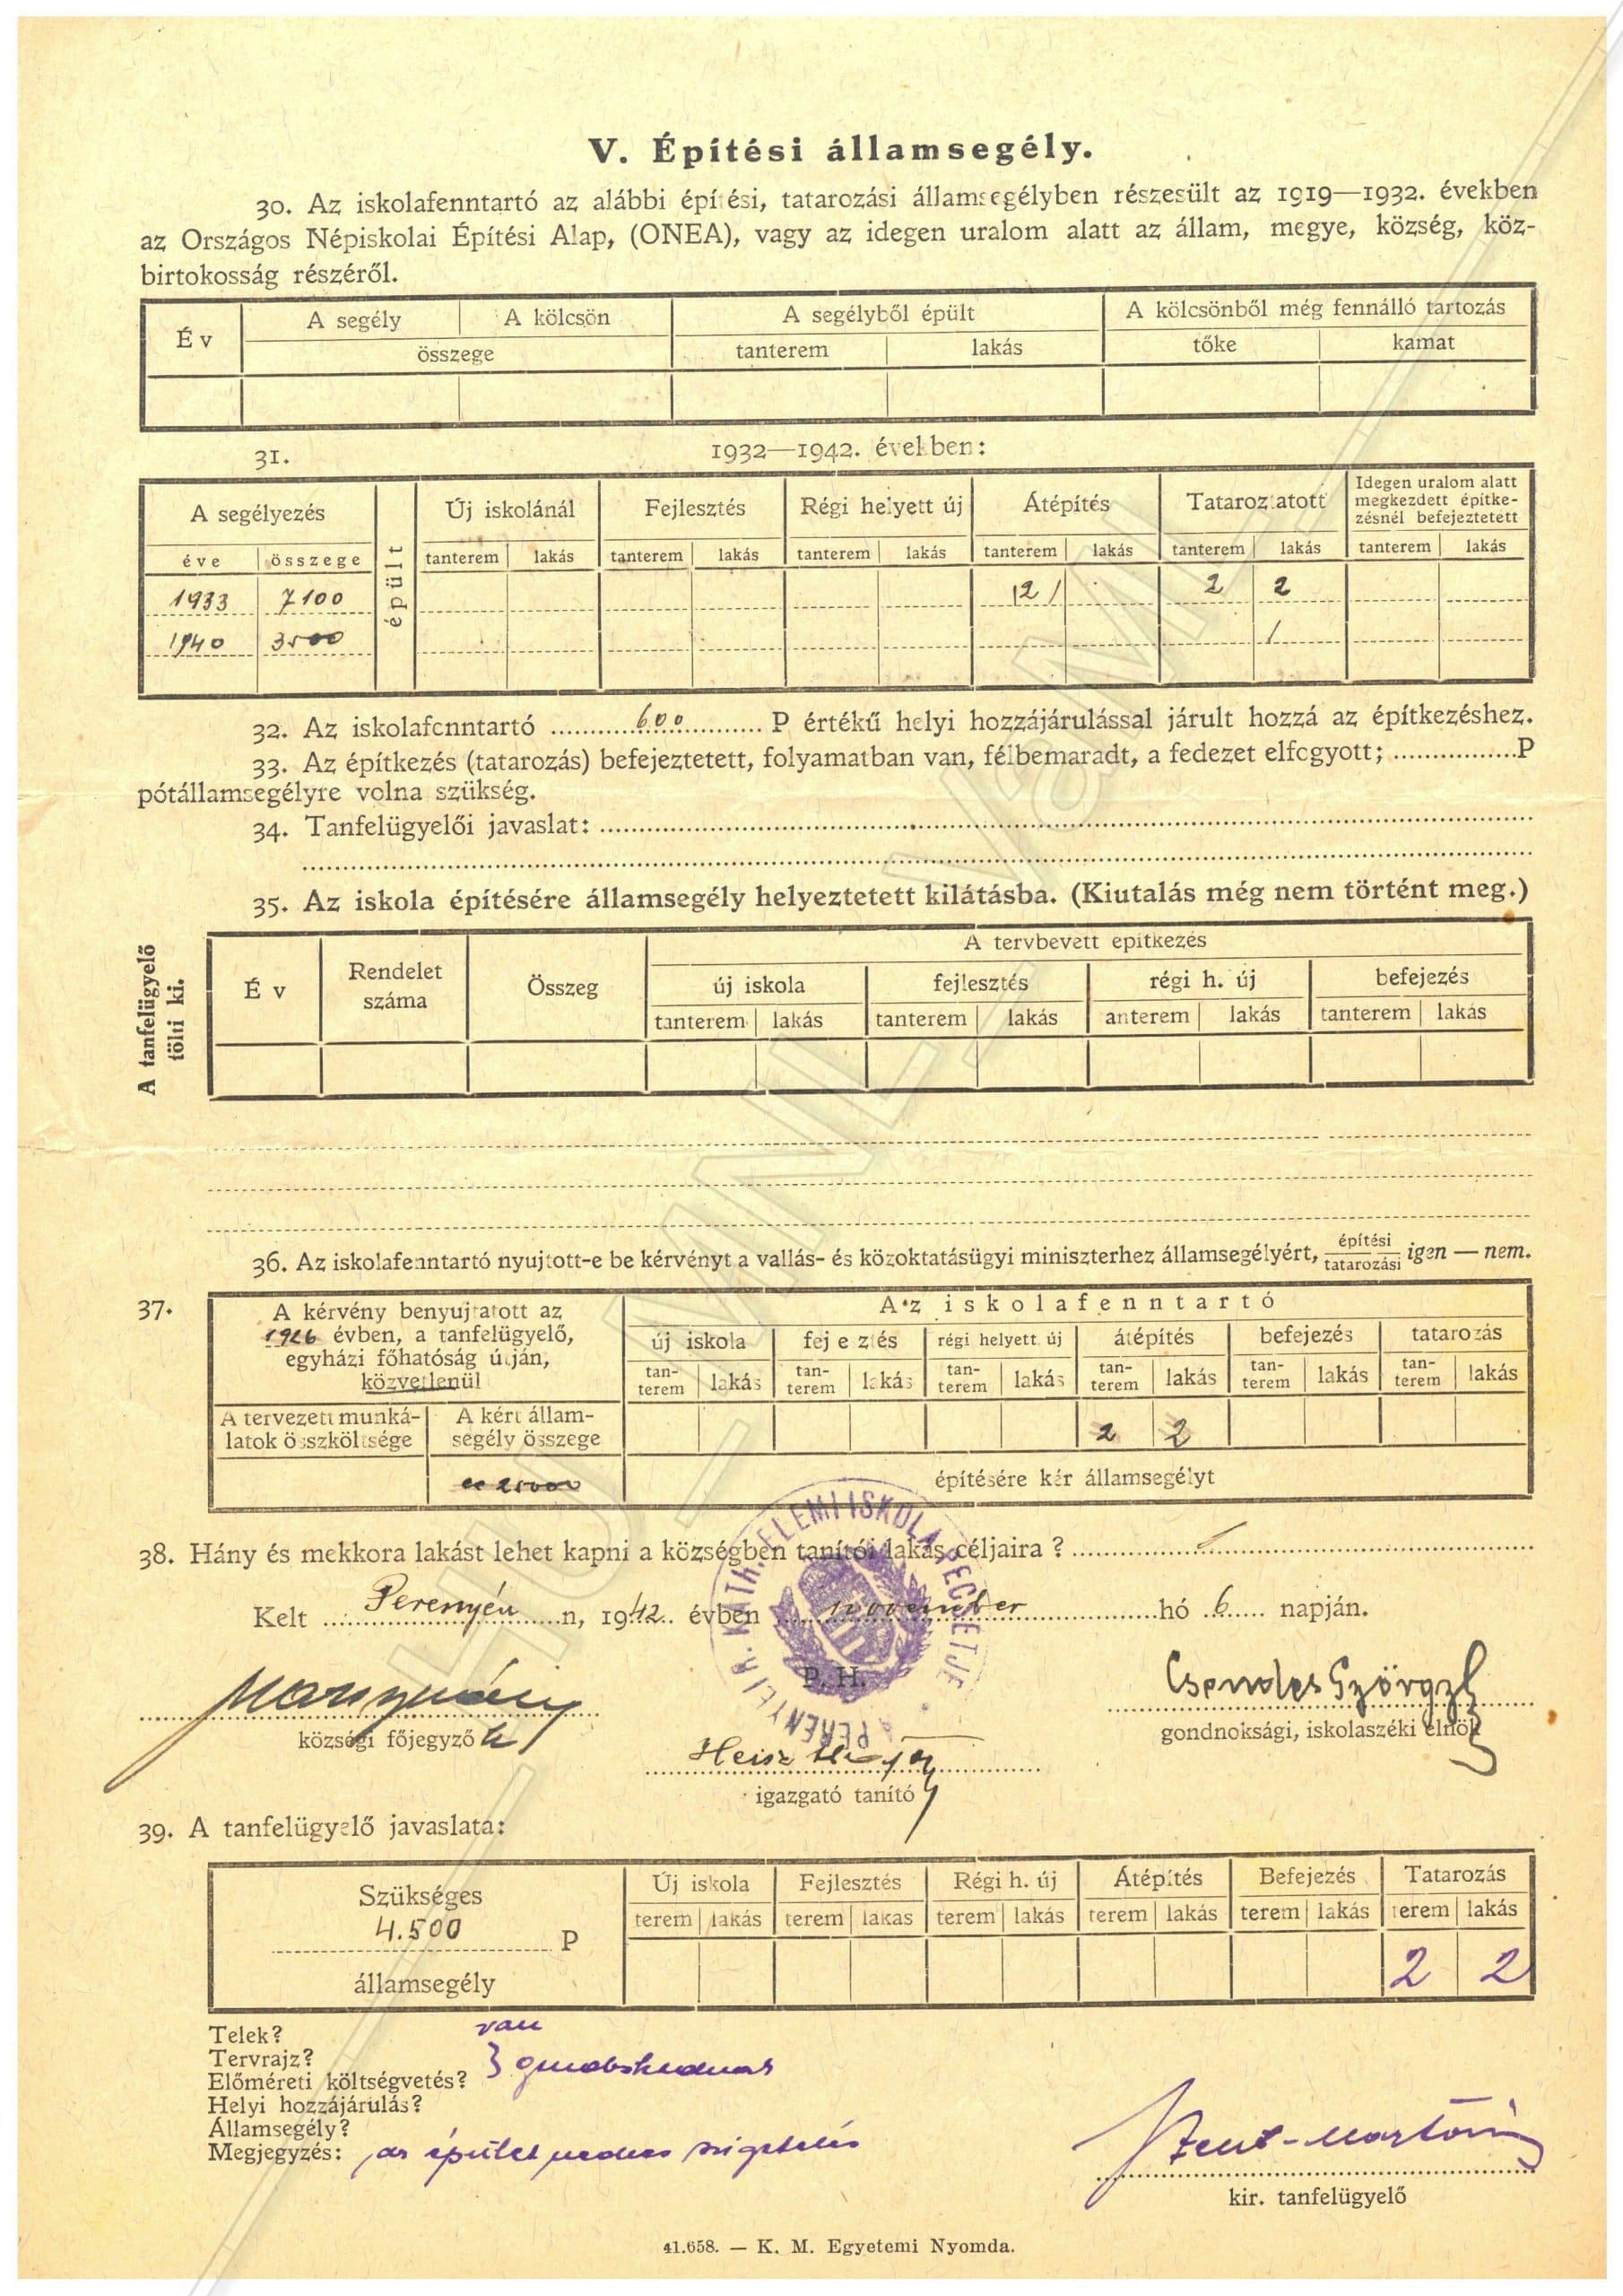 V. Építési államsegély.
30. Az iskolafenntartó az alábbi építési, tatarozási államsegélyben részesült az 1919—1932. években
az Országos Népiskolai Építési Alap, (ONEA), vagy az idegen uralom alatt az állam, megye, község, köz-
birtokosság részéről.
Év | A segély | A kölcsön | A segélyből épült | A kölcsönből még fennálló tartozás
összege | tanterem | lakás | tőke | kamat
31. 1932—1942. években:
A segélyezés | épült | Új iskolánál | Fejlesztés | Régi helyett új | Átépítés | Tataroztatott | Idegen uralom alatt
megkezdett építke-
zésnél befejeztetett
éve | összege | tanterem | lakás | tanterem | lakás | tanterem | lakás | tanterem | lakás | tanterem | lakás | tanterem | lakás
1933 7100 2 2
1940 3500 1
32. Az iskolafenntartó 600 P értékű helyi hozzájárulással járult hozzá az építkezéshez.
33. Az építkezés (tatarozás) befejeztetett, folyamatban van, félbemaradt, a fedezet elfogyott; P
pótállamsegélyre volna szükség.
34. Tanfelügyelői javaslat:
35. Az iskola építésére államsegély helyeztetett kilátásba. (Kiutalás még nem történt meg.)
A tanfelügyelő
tölti ki.
Év | Rendelet
száma | Összeg | A tervbevett építkezés
új iskola | fejlesztés | régi h. új | befejezés
tanterem | lakás | tanterem | lakás | anterem | lakás | tanterem | lakás
36. Az iskolafenntartó nyujtott-e be kérvényt a vallás- és közoktatásügyi miniszterhez államsegélyért, építési
tatarozási igen — nem.
37. A kérvény benyujtatott az
1926 évben, a tanfelügyelő,
egyházi főhatóság útján,
közvetlenül
Az iskolafenntartó
új iskola | fejlesztés | régi helyett új | átépítés | befejezés | tatarozás
tan-
terem | lakás | tan-
terem | lakás | tan-
terem | lakás | tan-
terem | lakás | tan-
terem | lakás | tan-
terem | lakás
A tervezett munká-
latok összköltsége | A kért állam-
segély összege
2 2
25000
építésére kér államsegélyt
38. Hány és mekkora lakást lehet kapni a községben tanítói lakás céljaira?
Kelt Perenyén n, 1942. évben november hó 6 napján.
P. H.
PERENYEI R. KATH. ELEMI ISKOLA PECSÉTJE
községi főjegyző h
Csendes György
gondnoksági, iskolaszéki elnök
Heisz
igazgató tanító
39. A tanfelügyelő javaslata:
Szükséges
4.500 P
államsegély
Új iskola | Fejlesztés | Régi h. új | Átépítés | Befejezés | Tatarozás
terem | lakás | terem | lakas | terem | lakás | terem | lakás | terem | lakás | terem | lakás
2 2
Telek? van
Tervrajz?
Előméreti költségvetés?
Helyi hozzájárulás?
Államsegély?
Megjegyzés: az épület nedves szigetelés
Szent-Mártoni
kir. tanfelügyelő
41.658. — K. M. Egyetemi Nyomda.
HU_MNL_VaML